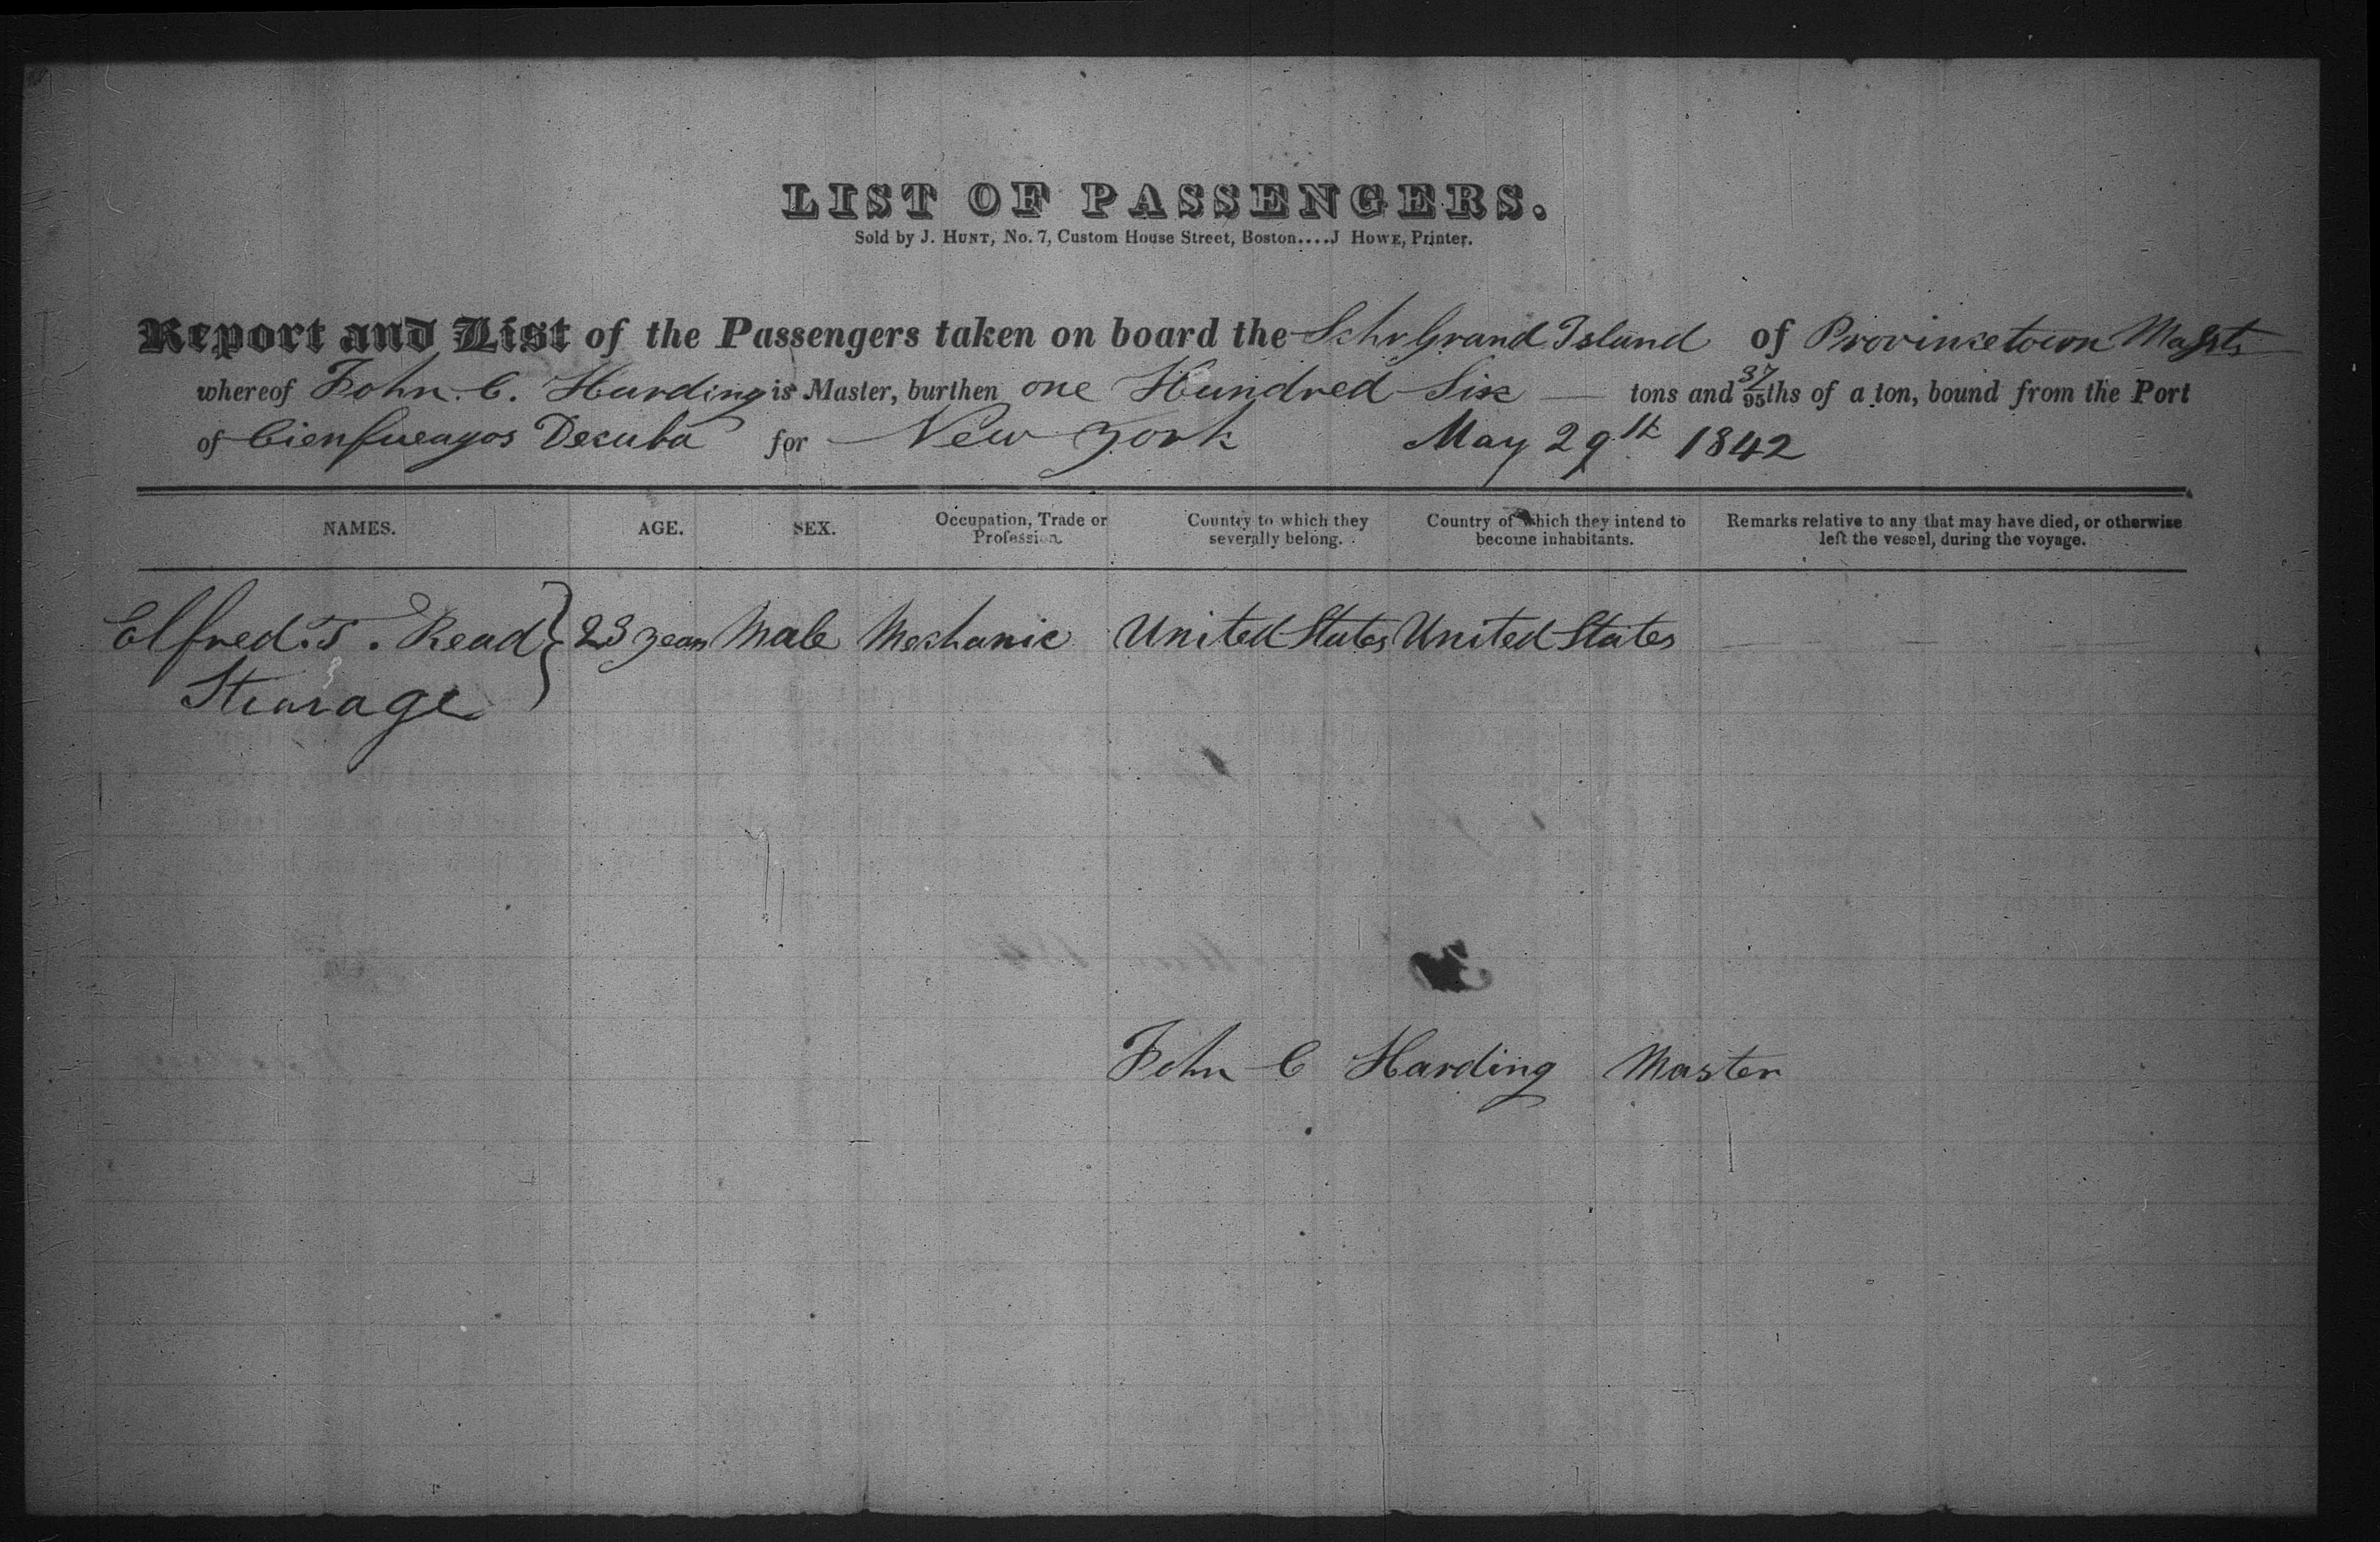 LIST OF PASSENGERS.
Sold by J. HUNT, No. 7, Custom House Street, Boston....J HOWE, Printer.
Report and List of the Passengers taken on board the Schr Grand Island of Provincetown Massts
whereof John. C. Harding is Master, burthen one Hundred Six — tons and 37/95ths of a ton, bound from the Port
of Cienfueagos Decuba for New york May 29th 1842
NAMES. AGE. SEX. Occupation, Trade or Profession. Country to which they severally belong. Country of which they intend to become inhabitants. Remarks relative to any that may have died, or otherwise left the vessel, during the voyage.
Elfred. T. Read } 23 years Male Mechanic United States United States
Sturage
John C Harding Master